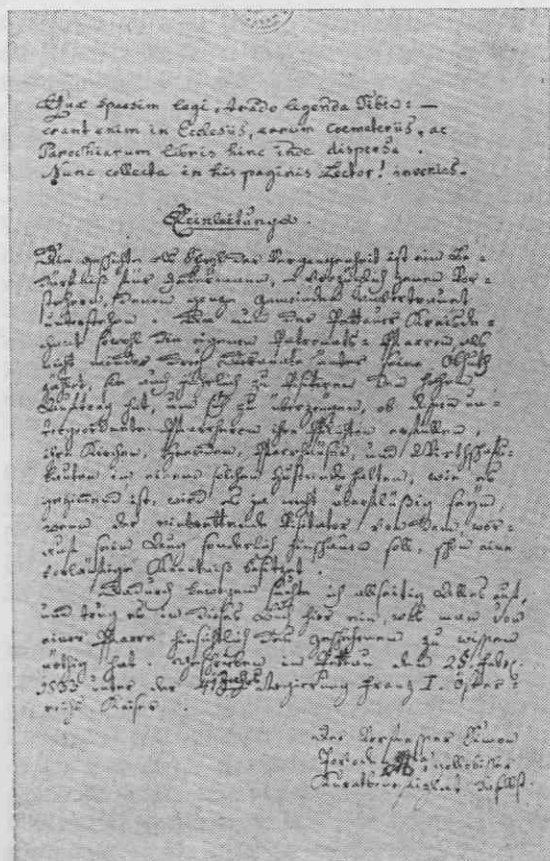 Quae sparsim legi, trado legenda Tibi: —
erant enim in Ecclesiis, earum Coemeteriis, ac
Parochiarum libris hinc inde dispersa.
Nunc collecta in his paginis Lector! invenies.
Einleitung.
Die Geschichte als der Vergangenheit ist ein Be-
dürfniß für Jedermann, vorzüglich jenen Vor-
stehern, denen ganze Gemeinden anvertraut
unterstehen. Da nun der Pettauer Kreisde-
chant sowohl die eigenen Patronats-Pfarren, als
nicht minder drei Dekanate unter seine Obhut
zählt, sie auch jährlich zu visitiren den hohen
Auftrag hat, um sich zu überzeugen, ob dessen un-
tergeordnete Pfarrherren ihre Pflichten erfüllen,
ihre Kirchen, Pfarrhäuser, und Wirthschafts-
bauten in einem solchen Zustande halten, wie es
geziemend ist, wird es ja nicht überflüßig seyn,
wenn der eintrettende Visitator von dem wor-
auf sein Aug sonderlich hinschauen soll, schon eine
vorläufige Kenntniß besitzet.
Dadurch bewogen suchte ich allseitig Alles auf,
und trug es in dieses Buch hier ein, was man von
einer Pfarre hinsichtlich des Geschehenen zu wissen
nöthig hat. Geschrieben in Pettau den 25. Febr.
1833 unter der 41 jährigen Regierung Franz I. Öster-
reichs Kaiser.
Der Verfasser Simon
daselbst.